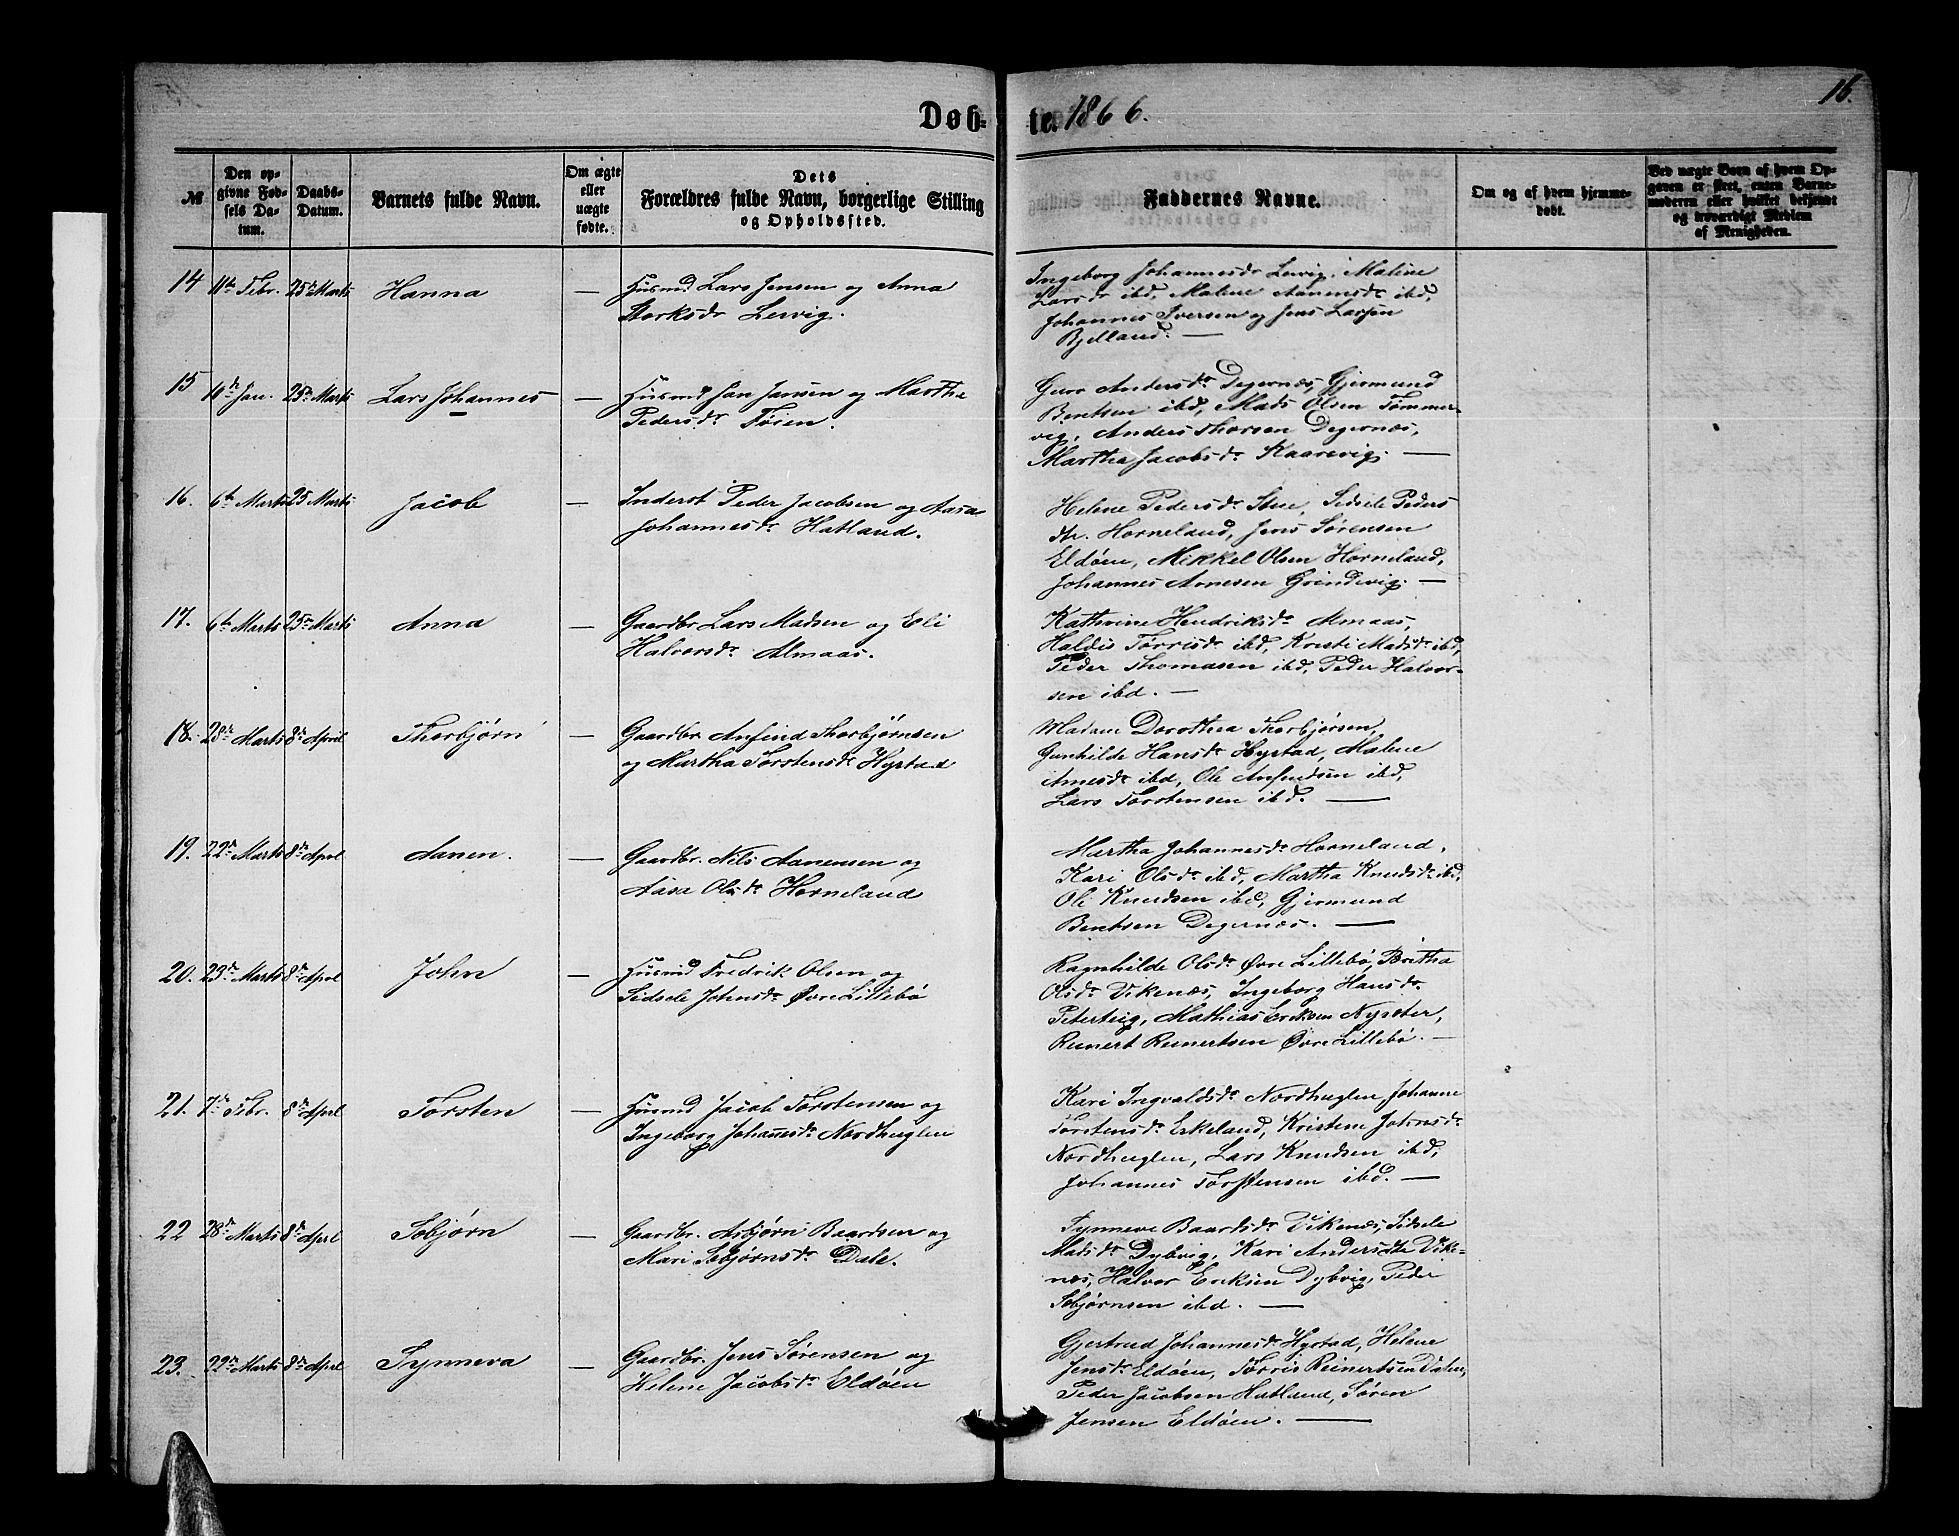 16.
Døb-
te. 1866.
№
Den op-
givne Fød-
sels Da-
tum.
Daabs-
Datum.
Barnets fulde Navn.
Om ægte
eller
uægte
fødte.
Dets
Forældres fulde Navn, borgerlige Stilling
og Opholdssted.
Faddernes Navne.
Om og af hvem hjemme-
døbt.
Ved uægte Børn af hvem Op-
gaven er skeet, enten Barne-
moderen eller hvilket bekjendt
og troværdigt Medlem
af Menigheden.
14 11te Febr. 25de Marts Hanna — Huusmd Lars Jensen og Anna
Storksdr Lervig.
Ingeborg Johannesdr Lervig, Malene
Larsdr ibd, Malene Aanensdr ibd,
Johannes Iversen og Jens Larsen
Bjelland. —
15 10de Jan. 25de Marts Lars Johannes — Huusmd Jan Jansen og Martha
Pedersdr Tøien.
Guro Andersdr Degernæs, Gjermund
Bentsen ibd, Mads Olsen Tømmer-
vig, Anders Thorsen Degernæs,
Martha Jacobsdr Kaarevig. —
16. 6te Marts 25 Marts Jacob — Inderst Peder Jacobsen og Aasa
Johannesdr Hatland.
Helene Pedersdr Stue, Sidsele Peders
dr. Horneland, Jens Sørensen
Eldøen, Mikkel Olsen Horneland,
Johannes Arnesen Grindevig. —
17. 6te Marts 25de Marts Anna — Gaardbr Lars Madsen og Eli
Halvorsdr Almaas.
Kathrine Hendriksdr Almaas,
Haldis Tørrisdr ibd, Kristi Madsdr ibd,
Peder Thomasen ibd, Peder Halvor-
sen ibd. —
18. 28de Marts 8de April Thorbjørn — Gaardbr Anfind Thorbjørnsen
og Martha Torstensdr Hystad
Madam Dorothea Thorbjørsen,
Gunhilde Hansdr Hystad, Malene
Arnesdr ibd, Ole Anfindsen ibd,
Lars Torstensen ibd. —
19. 22de Marts 8de Aprl Aanen. — Gaardbr. Nils Aanensen og
Aasa Olsdr Horneland
Martha Johannesdr Horneland,
Kari Olsdr ibd, Martha Knudsdr ibd,
Ole Knudsen ibd, Gjermund
Bentsen Degernæs. —
20. 23de Marts 8de Aprl John — Huusmd Fredrik Olsen og
Sidsele Johnsdr Øvre Lillebø
Ragnhilde Olsdr Øvre Lillebø, Britha
Olsdr Vikenæs, Ingeborg Hansdr
Peterteig, Mathias Eriksen Nysæter,
Reinert Reinertsen Øvre Lillebø. —
21. 7de Febr. 8de Aprl Torsten — Huusmd Jacob Torstensen og
Ingeborg Johannesdr Nordhuglen
Kari Ingvaldsdr Nordhuglen, Johanne
Torstensdr Eskeland, Kristene Johnsdr
Nordhuglen, Lars Knudsen ibd,
Johannes Torstensen ibd. —
22 28de Marts 8de Aprl Sebjørn — Gaardbr. Asbjørn Baardsen og
Mari Sebjørnsdr Dale.
Synneve Baardsdr Vikenæs, Sidsele
Madsdr Dybvig, Kari Andersdtr Vike-
næs, Halvor Eriksen Dybvig, Peder
Sebjørnsen ibd. —
23. 22de Marts 8de Aprl Synneva — Gaardbr. Jens Sørensen og
Helene Jacobsdr Eldøen
Gjertrud Johannesdr Hystad, Helene
Jensdr Eldøen, Tørris Reinertsen Dalen,
Peder Jacobsen Hatland, Søren
Jensen Eldøen. —